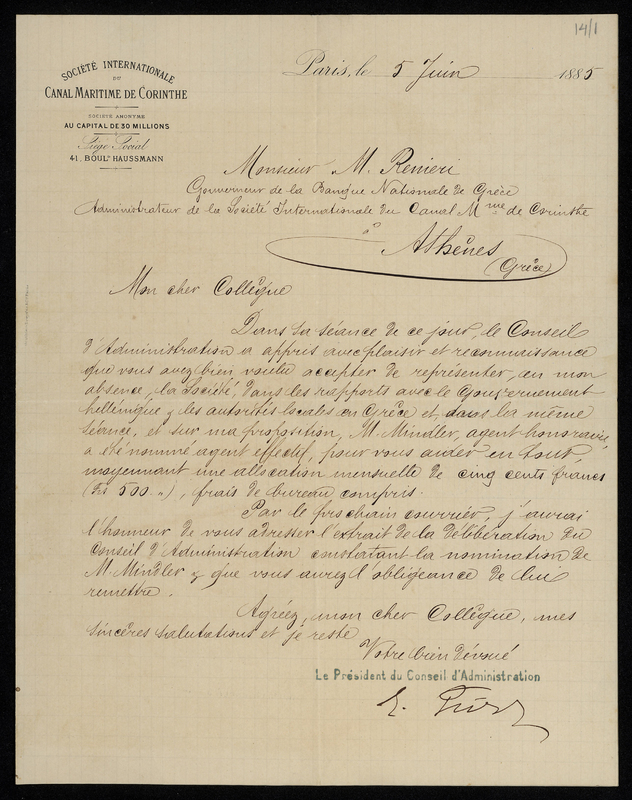 14/1
SOCIÉTÉ INTERNATIONALE
DU
CANAL MARITIME DE CORINTHE
SOCIÉTÉ ANONYME
AU CAPITAL DE 30 MILLIONS
Siège Social
41, BOULD HAUSSMANN
Paris, le 5 Juin 1885
Monsieur M. Renieri
Gouverneur de la Banque Nationale de Grèce
Administrateur de la Société Internationale du Canal Mme de Corinthe
à
Athènes
(Grèce)
Mon cher Collègue
Dans sa séance de ce jour, le Conseil
d'Administration a appris avec plaisir et reconnaissance
que vous avez bien voulu accepter de représenter, en mon
absence, la Société, dans les rapports avec le Gouvernement
hellénique & les autorités locales en Grèce et, dans la même
séance, et sur ma proposition, M. Mindler, agent honoraire,
a été nommé agent effectif, pour vous aider en tout,
moyennant une allocation mensuelle de cinq cents francs
(Frs 500.„), frais de bureau compris.
Par le prochain courrier, j'aurai
l'honneur de vous adresser l'extrait de la délibération du
Conseil d'Administration constatant la nomination de
M. Mindler & que vous aurez l'obligeance de lui
remettre.
Agréez, mon cher Collègue, mes
sincères salutations et je reste
Votre bien dévoué
Le Président du Conseil d'Administration